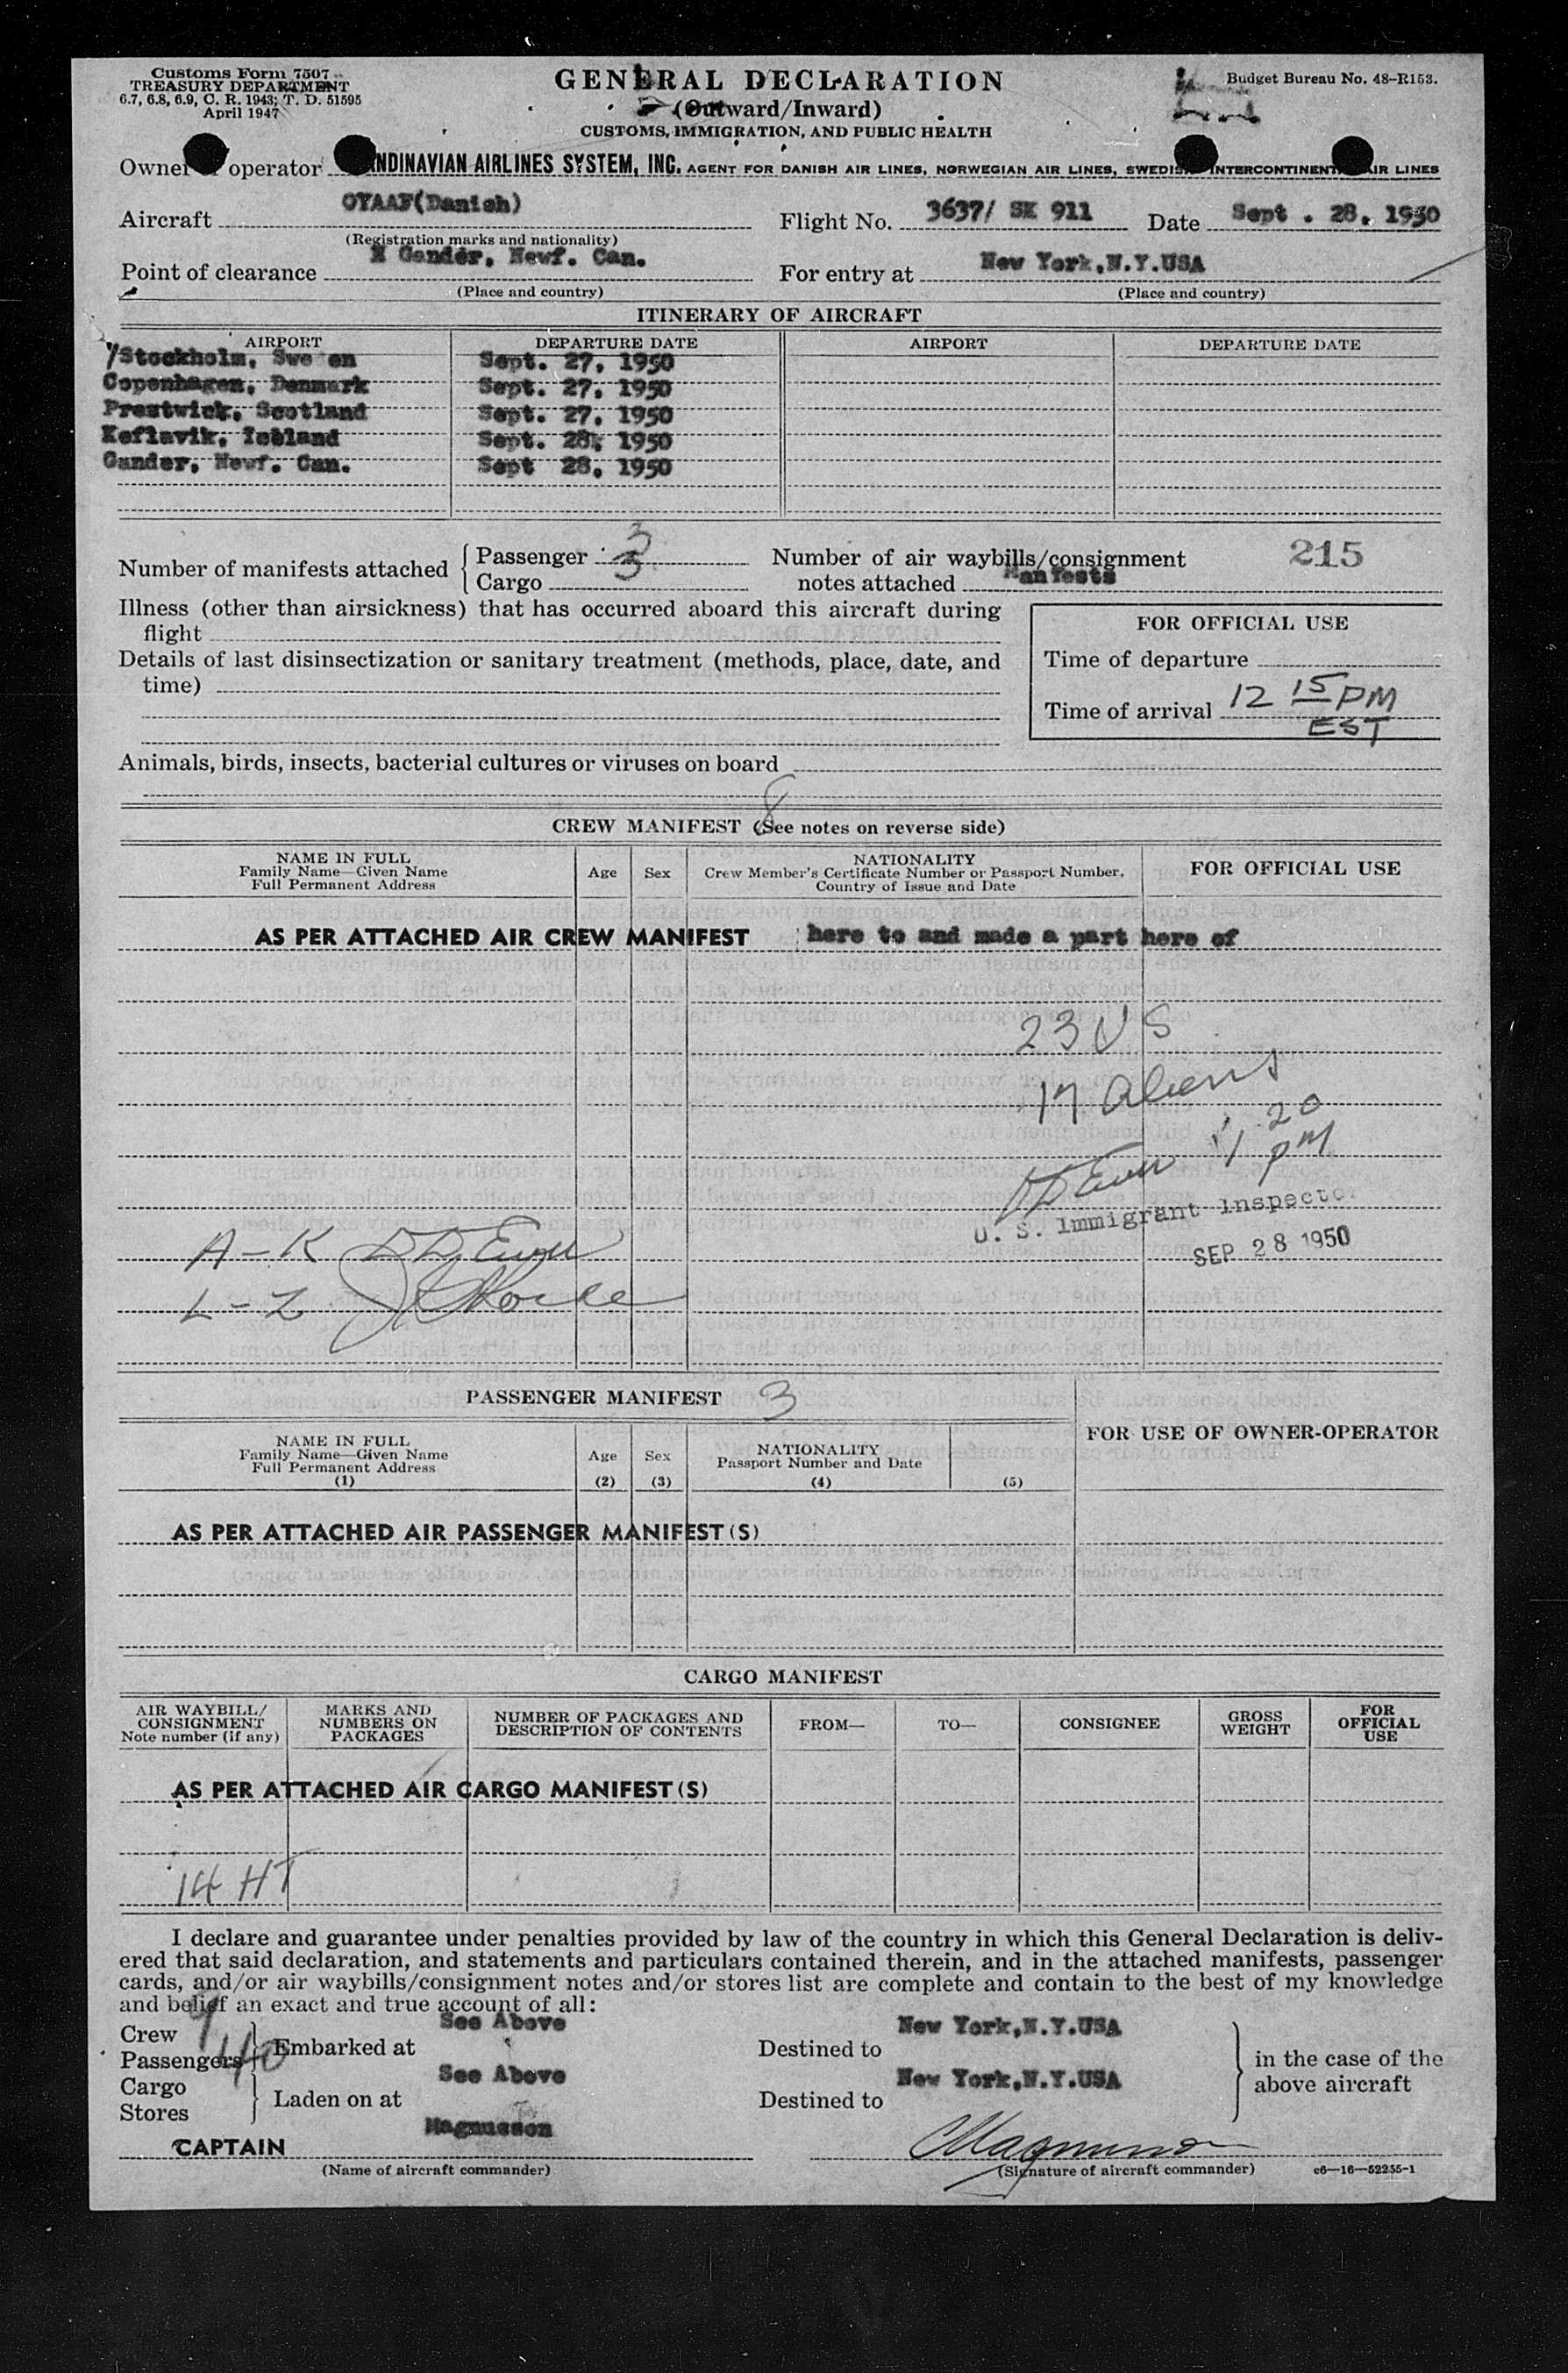 Customs Form 7507
TREASURY DEPARTMENT
6.7, 6.8, 6.9, C. R. 1943; T. D. 51595
April 1947
GENERAL DECLARATION
(Outward/Inward)
CUSTOMS, IMMIGRATION, AND PUBLIC HEALTH
Budget Bureau No. 48-R153.
Owner operator NDINAVIAN AIRLINES SYSTEM, INC. AGENT FOR DANISH AIR LINES, NORWEGIAN AIR LINES, SWEDIS INTERCONTINENT AIR LINES
Aircraft OYAAF(Danish)
(Registration marks and nationality)
Flight No. 3637/ SK 911 Date Sept . 28. 1950
Point of clearance Gander, Newf. Can.
(Place and country)
For entry at New York,N.Y.USA
(Place and country)
ITINERARY OF AIRCRAFT
AIRPORT DEPARTURE DATE AIRPORT DEPARTURE DATE
/Stockholm, Swe en Sept. 27, 1950
Copenhagen, Denmark Sept. 27, 1950
Prestwick, Scotland Sept. 27, 1950
Keflavik, Iceland Sept. 28, 1950
Gander, Newf. Can. Sept 28, 1950
Number of manifests attached
Passenger 3
Cargo 3
Number of air waybills/consignment
notes attached Manfests
215
Illness (other than airsickness) that has occurred aboard this aircraft during
flight
Details of last disinsectization or sanitary treatment (methods, place, date, and
time)
FOR OFFICIAL USE
Time of departure
Time of arrival 12 15 PM
EST
Animals, birds, insects, bacterial cultures or viruses on board
8
CREW MANIFEST (See notes on reverse side)
NAME IN FULL
Family Name—Given Name
Full Permanent Address
Age
Sex
NATIONALITY
Crew Member's Certificate Number or Passport Number,
Country of Issue and Date
FOR OFFICIAL USE
AS PER ATTACHED AIR CREW MANIFEST here to and made a part here of
23 US
17 Aliens
1 20
PM
U. S. Immigrant Inspector
SEP 28 1950
A - K
L - Z
PASSENGER MANIFEST 3
NAME IN FULL
Family Name—Given Name
Full Permanent Address
(1)
Age
(2)
Sex
(3)
NATIONALITY
Passport Number and Date
(4)
(5)
FOR USE OF OWNER-OPERATOR
AS PER ATTACHED AIR PASSENGER MANIFEST(S)
CARGO MANIFEST
AIR WAYBILL/
CONSIGNMENT
Note number (if any)
MARKS AND
NUMBERS ON
PACKAGES
NUMBER OF PACKAGES AND
DESCRIPTION OF CONTENTS
FROM—
TO—
CONSIGNEE
GROSS
WEIGHT
FOR
OFFICIAL
USE
AS PER ATTACHED AIR CARGO MANIFEST(S)
14 HT
I declare and guarantee under penalties provided by law of the country in which this General Declaration is deliv-
ered that said declaration, and statements and particulars contained therein, and in the attached manifests, passenger
cards, and/or air waybills/consignment notes and/or stores list are complete and contain to the best of my knowledge
and belief an exact and true account of all:
Crew 9
Passengers 40
Embarked at See Above
Destined to New York,N.Y.USA
Cargo
Stores
Laden on at See Above
Destined to New York,N.Y.USA
in the case of the
above aircraft
CAPTAIN Magnusson
(Name of aircraft commander)
Magnusson
(Signature of aircraft commander)
c6—16—52255-1